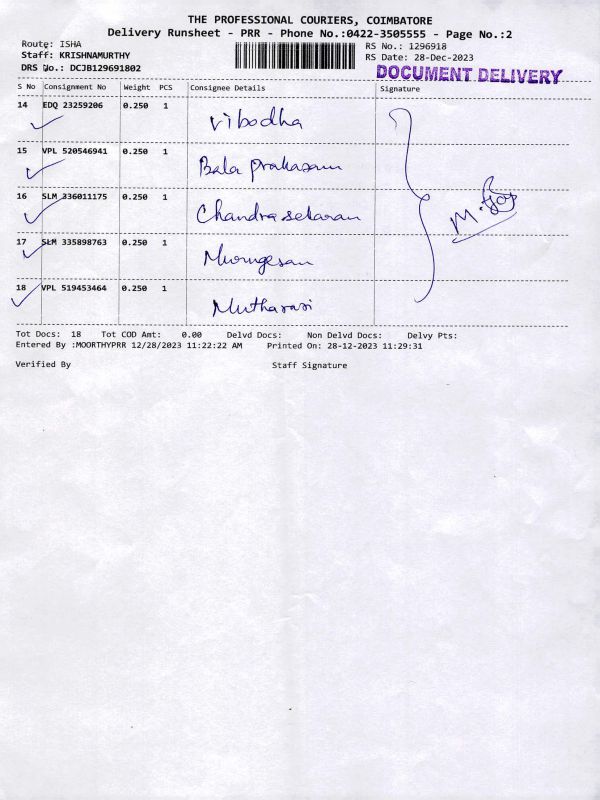 THE PROFESSIONAL COURIERS, COIMBATORE
Delivery Runsheet - PRR - Phone No.:0422-3505555 - Page No.:2
Route: ISHA
Staff: KRISHNAMURTHY
DRS No.: DCJB129691802
RS No.: 1296918
RS Date: 28-Dec-2023
DOCUMENT DELIVERY
S No Consignment No Weight PCS Consignee Details Signature
14 EDQ 23259206 0.250 1 Vibodha
15 VPL 520546941 0.250 1 Bala prakasam
16 SLM 336011175 0.250 1 Chandrasekaran
17 SLM 335898763 0.250 1 Murugesan
18 VPL 519453464 0.250 1 Mutharasi
Tot Docs: 18 Tot COD Amt: 0.00 Delvd Docs: Non Delvd Docs: Delvy Pts:
Entered By :MOORTHYPRR 12/28/2023 11:22:22 AM Printed On: 28-12-2023 11:29:31
Verified By Staff Signature